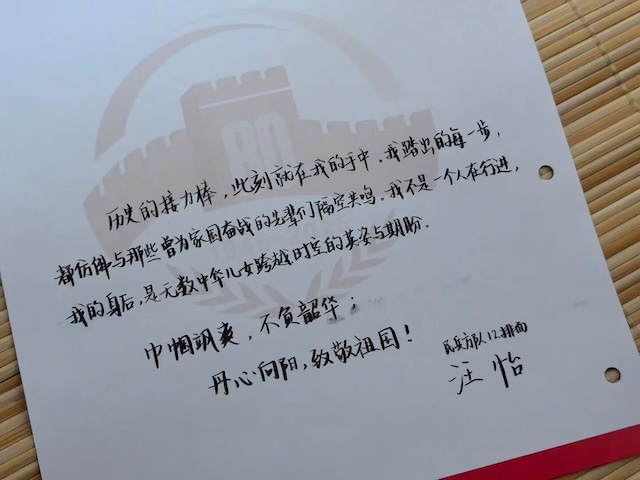 80
历史的接力棒，此刻就在我的手中，我踏出的每一步，
都仿佛与那些曾为家国奋战的先辈们隔空共鸣。我不是一个人在行进，
我的身后，是无数中华儿女跨越时空的英姿与期盼。
巾帼飒爽，不负韶华；
丹心向阳，致敬祖国！
民兵方队12排面
汪怡